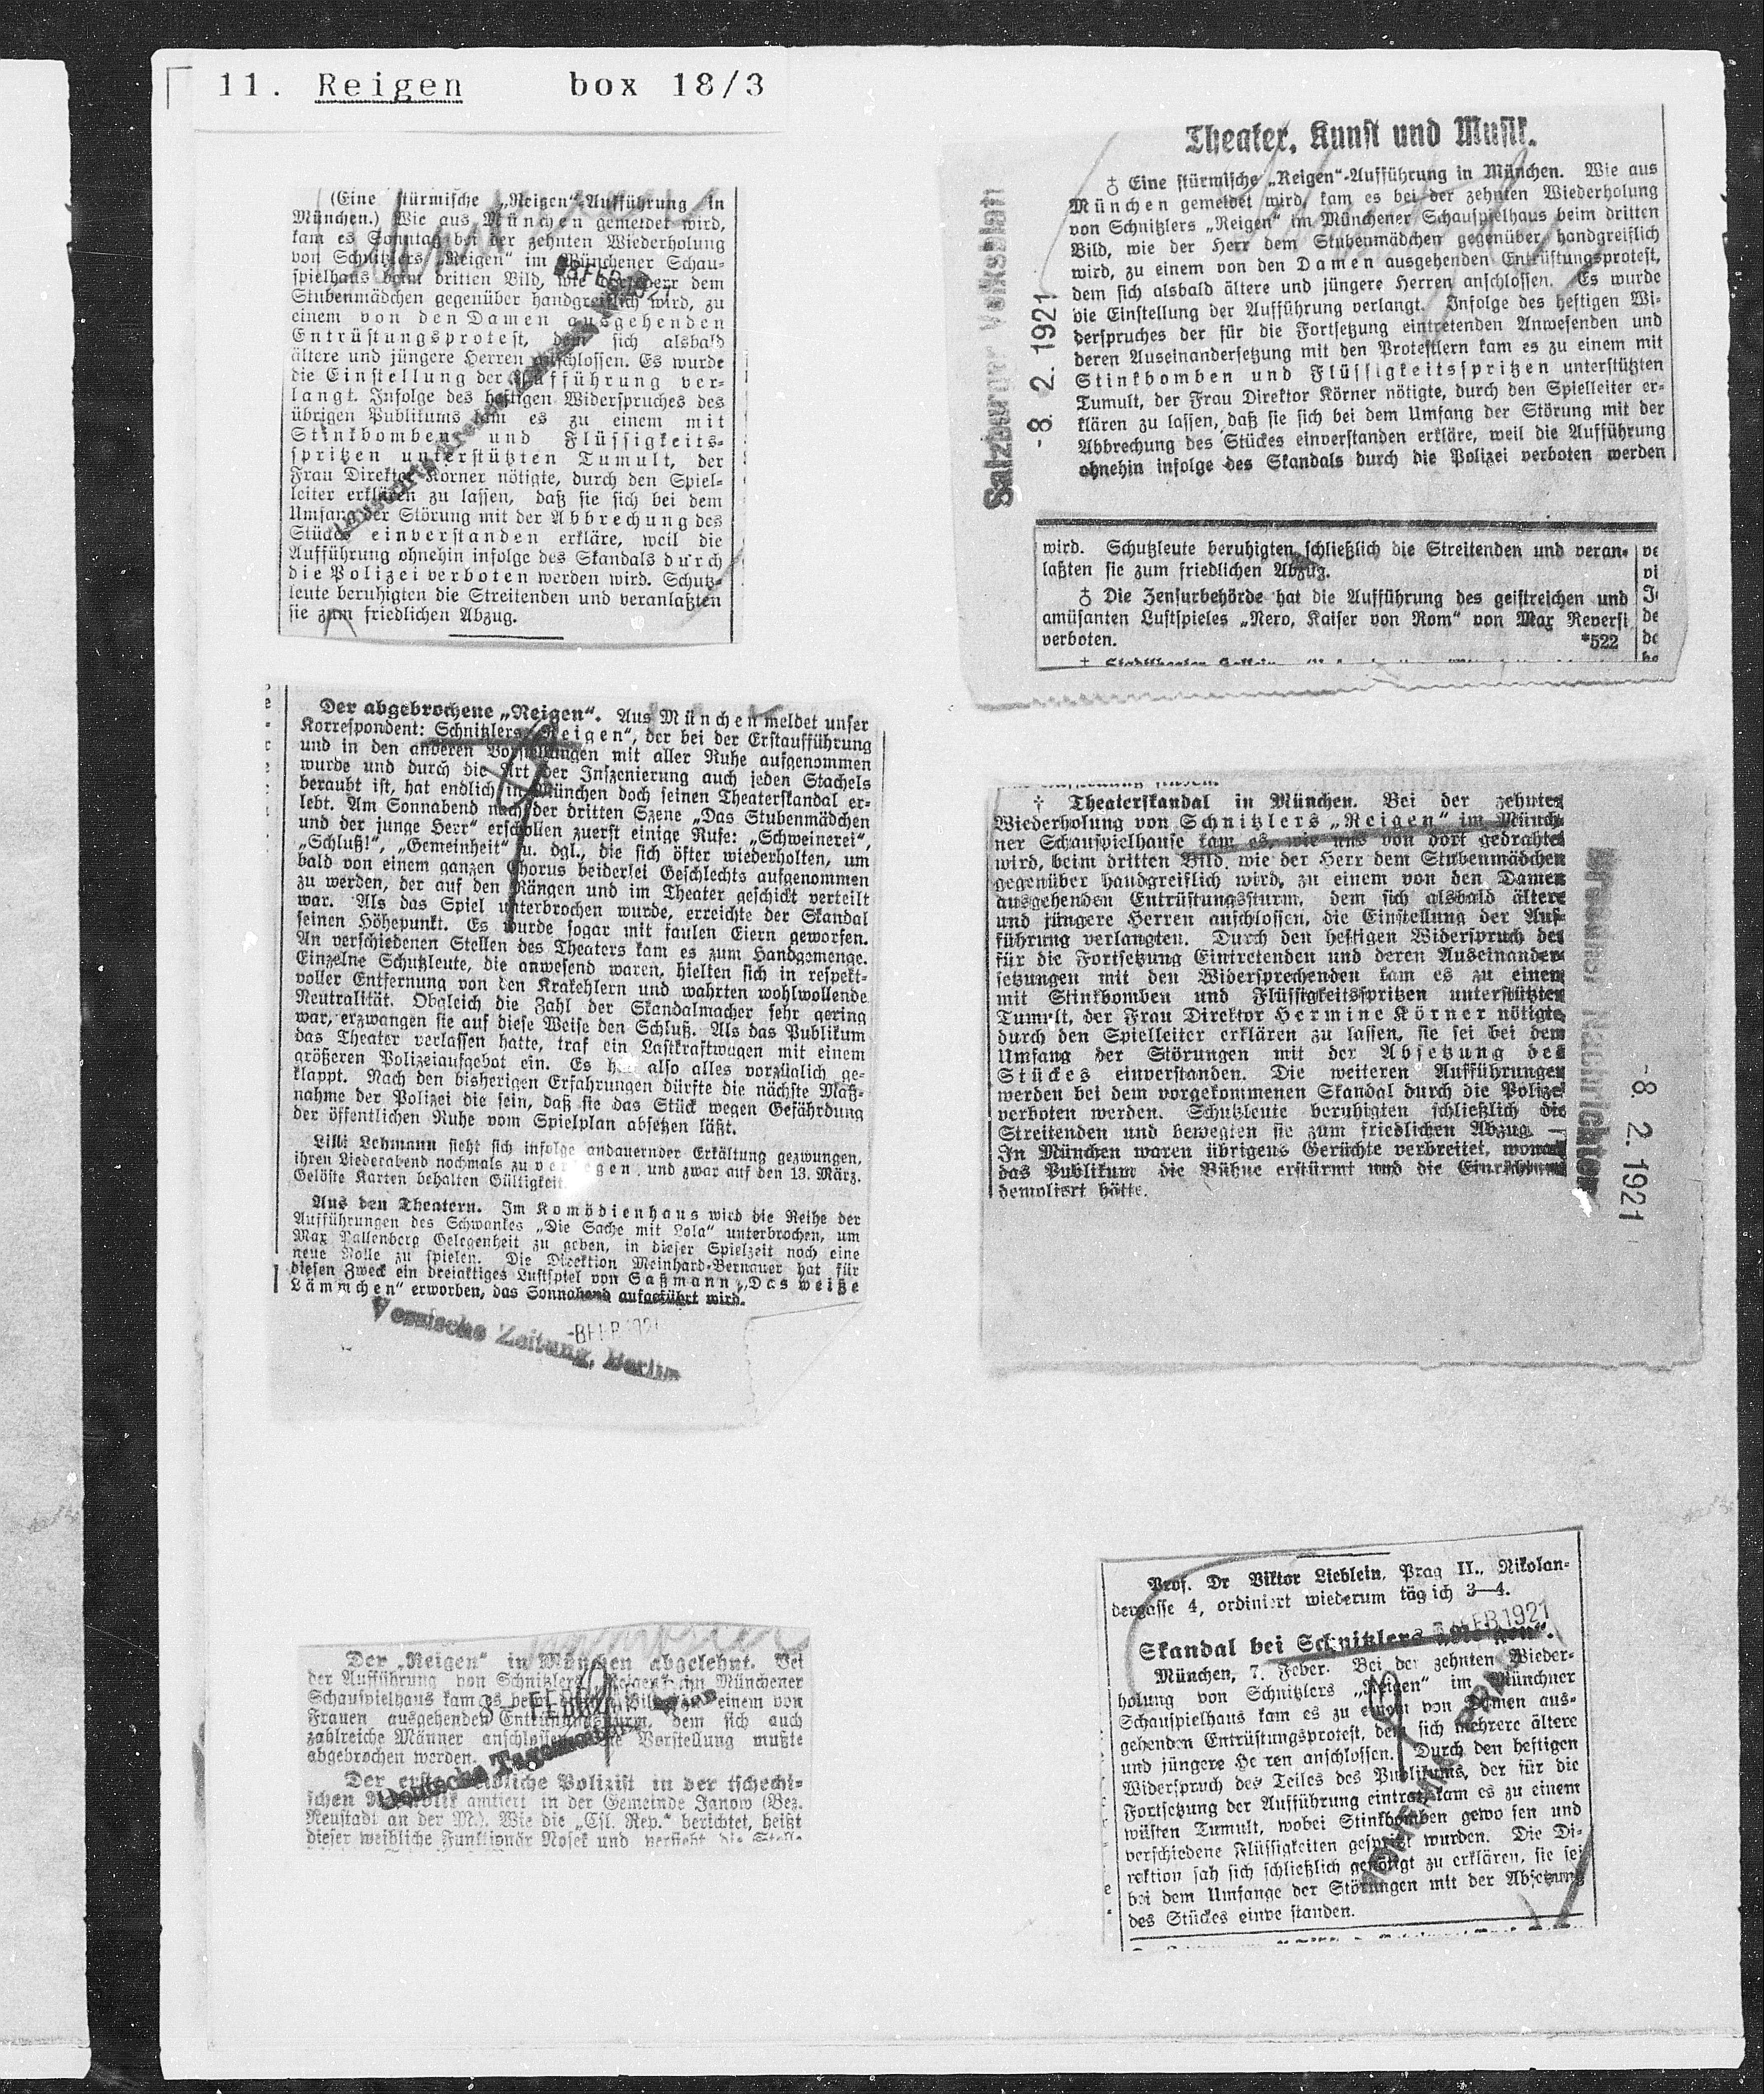 11. Reigen box 18/3
(Eine stürmische „Reigen“-Aufführung in
München.) Wie aus München gemeldet wird,
kam es Sonntag bei der zehnten Wiederholung
von Schnitzlers „Reigen“ im Münchener Schau-
spielhaus beim dritten Bild, wie der Herr dem
Stubenmädchen gegenüber handgreiflich wird, zu
einem von den Damen ausgehenden
Entrüstungsprotest, dem sich alsbald
ältere und jüngere Herren anschlossen. Es wurde
die Einstellung der Aufführung ver-
langt. Infolge des heftigen Widerspruches des
übrigen Publikums kam es zu einem mit
Stinkbomben und Flüssigkeits-
spritzen unterstützten Tumult, der
Frau Direktor Körner nötigte, durch den Spiel-
leiter erklären zu lassen, daß sie sich bei dem
Umfang der Störung mit der Abbrechung des
Stückes einverstanden erkläre, weil die
Aufführung ohnehin infolge des Skandals durch
die Polizei verboten werden wird. Schutz-
leute beruhigten die Streitenden und veranlaßten
sie zum friedlichen Abzug.
Theater, Kunst und Musik.
Salzburger Volksblatt
-8. 2. 1921
♁ Eine stürmische „Reigen“-Aufführung in München. Wie aus
München gemeldet wird, kam es bei der zehnten Wiederholung
von Schnitzlers „Reigen“ im Münchener Schauspielhaus beim dritten
Bild, wie der Herr dem Stubenmädchen gegenüber handgreiflich
wird, zu einem von den Damen ausgehenden Entrüstungsprotest,
dem sich alsbald ältere und jüngere Herren anschlossen. Es wurde
die Einstellung der Aufführung verlangt. Infolge des heftigen Wi-
derspruches der für die Fortsetzung eintretenden Anwesenden und
deren Auseinandersetzung mit den Protestlern kam es zu einem mit
Stinkbomben und Flüssigkeitsspritzen unterstützten
Tumult, der Frau Direktor Körner nötigte, durch den Spielleiter er-
klären zu lassen, daß sie sich bei dem Umfang der Störung mit der
Abbrechung des Stückes einverstanden erkläre, weil die Aufführung
ohnehin infolge des Skandals durch die Polizei verboten werden
wird. Schutzleute beruhigten schließlich die Streitenden und veran-
laßten sie zum friedlichen Abzug.
♁ Die Zensurbehörde hat die Aufführung des geistreichen und
amüsanten Lustspieles „Nero, Kaiser von Rom“ von Max Reversi
verboten. *522
Der abgebrochene „Reigen“. Aus München meldet unser
Korrespondent: Schnitzlers „Reigen“, der bei der Erstaufführung
und in den anderen Vorstellungen mit aller Ruhe aufgenommen
wurde und durch die Art der Inszenierung auch jeden Stachels
beraubt ist, hat endlich in München doch seinen Theaterskandal er-
lebt. Am Sonnabend nach der dritten Szene „Das Stubenmädchen
und der junge Herr“ erschollen zuerst einige Rufe: „Schweinerei“,
„Schluß!“, „Gemeinheit“ u. dgl., die sich öfter wiederholten, um
bald von einem ganzen Chorus beiderlei Geschlechts aufgenommen
zu werden, der auf den Rängen und im Theater geschickt verteilt
war. Als das Spiel unterbrochen wurde, erreichte der Skandal
seinen Höhepunkt. Es wurde sogar mit faulen Eiern geworfen.
An verschiedenen Stellen des Theaters kam es zum Handgemenge.
Einzelne Schutzleute, die anwesend waren, hielten sich in respekt-
voller Entfernung von den Krakehlern und wahrten wohlwollende
Neutralität. Obgleich die Zahl der Skandalmacher sehr gering
war, erzwangen sie auf diese Weise den Schluß. Als das Publikum
das Theater verlassen hatte, traf ein Lastkraftwagen mit einem
größeren Polizeiaufgebot ein. Es hat also alles vorzüglich ge-
klappt. Nach den bisherigen Erfahrungen dürfte die nächste Maß-
nahme der Polizei die sein, daß sie das Stück wegen Gefährdung
der öffentlichen Ruhe vom Spielplan absetzen läßt.
Lilli Lehmann sieht sich infolge andauernder Erkältung gezwungen,
ihren Liederabend nochmals zu verlegen, und zwar auf den 13. März.
Gelöste Karten behalten Gültigkeit.
Aus den Theatern. Im Komödienhaus wird die Reihe der
Aufführungen des Schwankes „Die Sache mit Lola“ unterbrochen, um
Max Pallenberg Gelegenheit zu geben, in dieser Spielzeit noch eine
neue Rolle zu spielen. Die Direktion Meinhard-Bernauer hat für
diesen Zweck ein dreiaktiges Lustspiel von Saßmann „Das weiße
Lämmchen“ erworben, das Sonnabend aufgeführt wird.
Vossische Zeitung, Berlin
-8 FEB 1921
† Theaterskandal in München. Bei der zehnten
Wiederholung von Schnitzlers „Reigen“ im Münch-
ner Schauspielhause kam es, wie uns von dort gedrahtet
wird, beim dritten Bild, wie der Herr dem Stubenmädchen
gegenüber handgreiflich wird, zu einem von den Damen
ausgehenden Entrüstungssturm, dem sich alsbald ältere
und jüngere Herren anschlossen, die Einstellung der Auf-
führung verlangten. Durch den heftigen Widerspruch der
für die Fortsetzung Eintretenden und deren Auseinander-
setzungen mit den Widersprechenden kam es zu einem
mit Stinkbomben und Flüssigkeitsspritzen unterstützten
Tumult, der Frau Direktor Hermine Körner nötigte,
durch den Spielleiter erklären zu lassen, sie sei bei dem
Umfang der Störungen mit der Absetzung des
Stückes einverstanden. Die weiteren Aufführungen
werden bei dem vorgekommenen Skandal durch die Polizei
verboten werden. Schutzleute beruhigten schließlich die
Streitenden und bewegten sie zum friedlichen Abzug.
In München waren übrigens Gerüchte verbreitet, wonach
das Publikum die Bühne erstürmt und die Einrichtung
demoliert hätte.
Nachrichten
-8. 2. 1921
Der „Reigen“ in München abgelehnt. Bei
der Aufführung von Schnitzlers „Reigen“ im Münchener
Schauspielhaus kam es beim dritten Bild zu einem von
Frauen ausgehenden Entrüstungssturm, dem sich auch
zahlreiche Männer anschlossen. Die Vorstellung mußte
abgebrochen werden.
Der erste weibliche Polizist in der tschechi-
schen Republik amtiert in der Gemeinde Janow (Bez.
Neustadt an der M.). Wie die „Csl. Rep.“ berichtet, heißt
dieser weibliche Funktionär Nosek und versieht die
Prof. Dr Viktor Lieblein, Prag II., Nikolan-
dergasse 4, ordiniert wiederum täg ich 3—4.
Skandal bei Schnitzlers „Reigen“.
FEB 1921
München, 7. Feber. Bei der zehnten Wieder-
holung von Schnitzlers „Reigen“ im Münchner
Schauspielhaus kam es zu einem von Damen aus-
gehenden Entrüstungsprotest, dem sich mehrere ältere
und jüngere He ren anschlossen. Durch den heftigen
Widerspruch des Teiles des Publikums, der für die
Fortsetzung der Aufführung eintrat, kam es zu einem
wüsten Tumult, wobei Stinkbomben gewo fen und
verschiedene Flüssigkeiten gespritzt wurden. Die Di-
rektion sah sich schließlich genötigt zu erklären, sie sei
bei dem Umfange der Störungen mit der Absetzung
des Stückes einve standen.